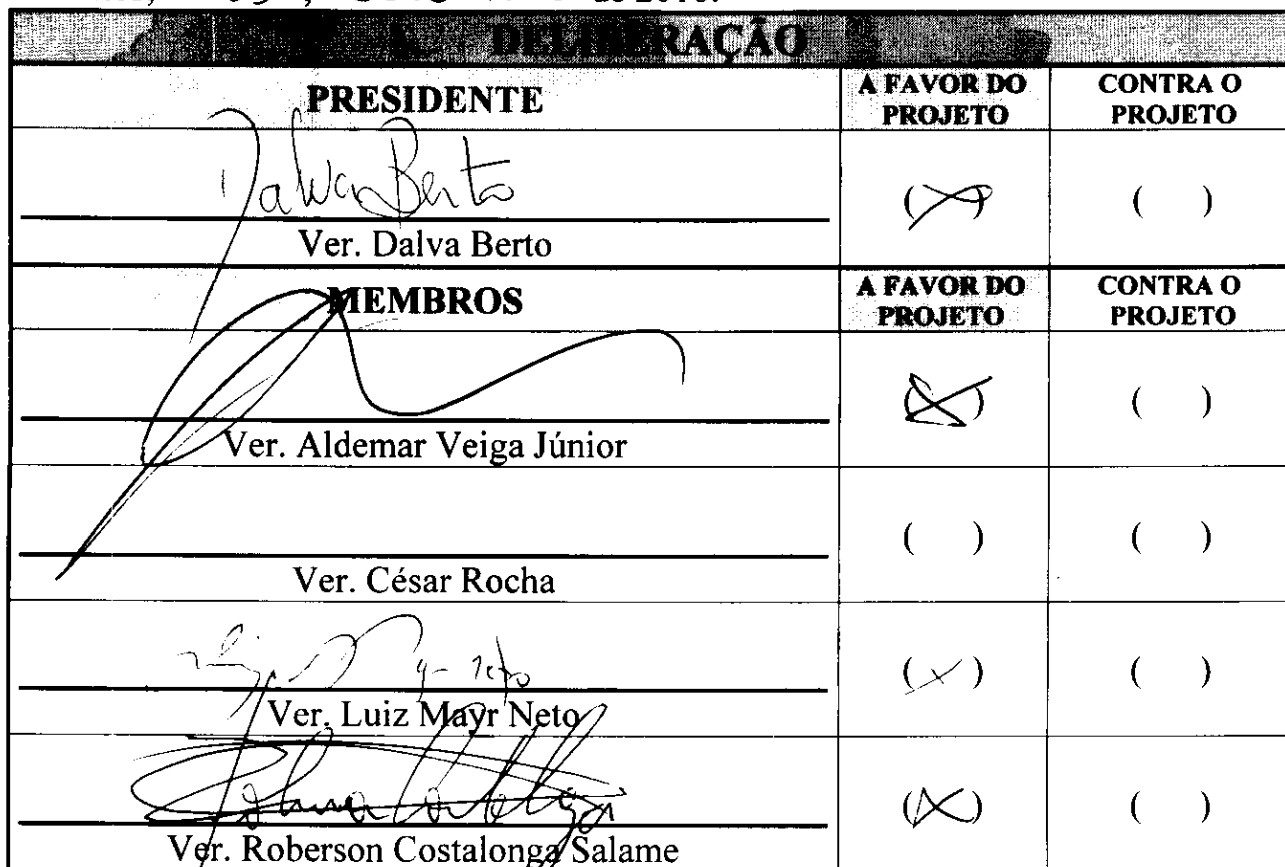 de 2018.
DELIBERAÇÃO
PRESIDENTE
A FAVOR DO PROJETO
CONTRA O PROJETO
Dalva Berto
( X )
( )
Ver. Dalva Berto
MEMBROS
A FAVOR DO PROJETO
CONTRA O PROJETO
(X)
( )
Ver. Aldemar Veiga Júnior
( )
( )
Ver. César Rocha
(X)
( )
Ver. Luiz Mayr Neto
(X)
( )
Ver. Roberson Costalonga Salame